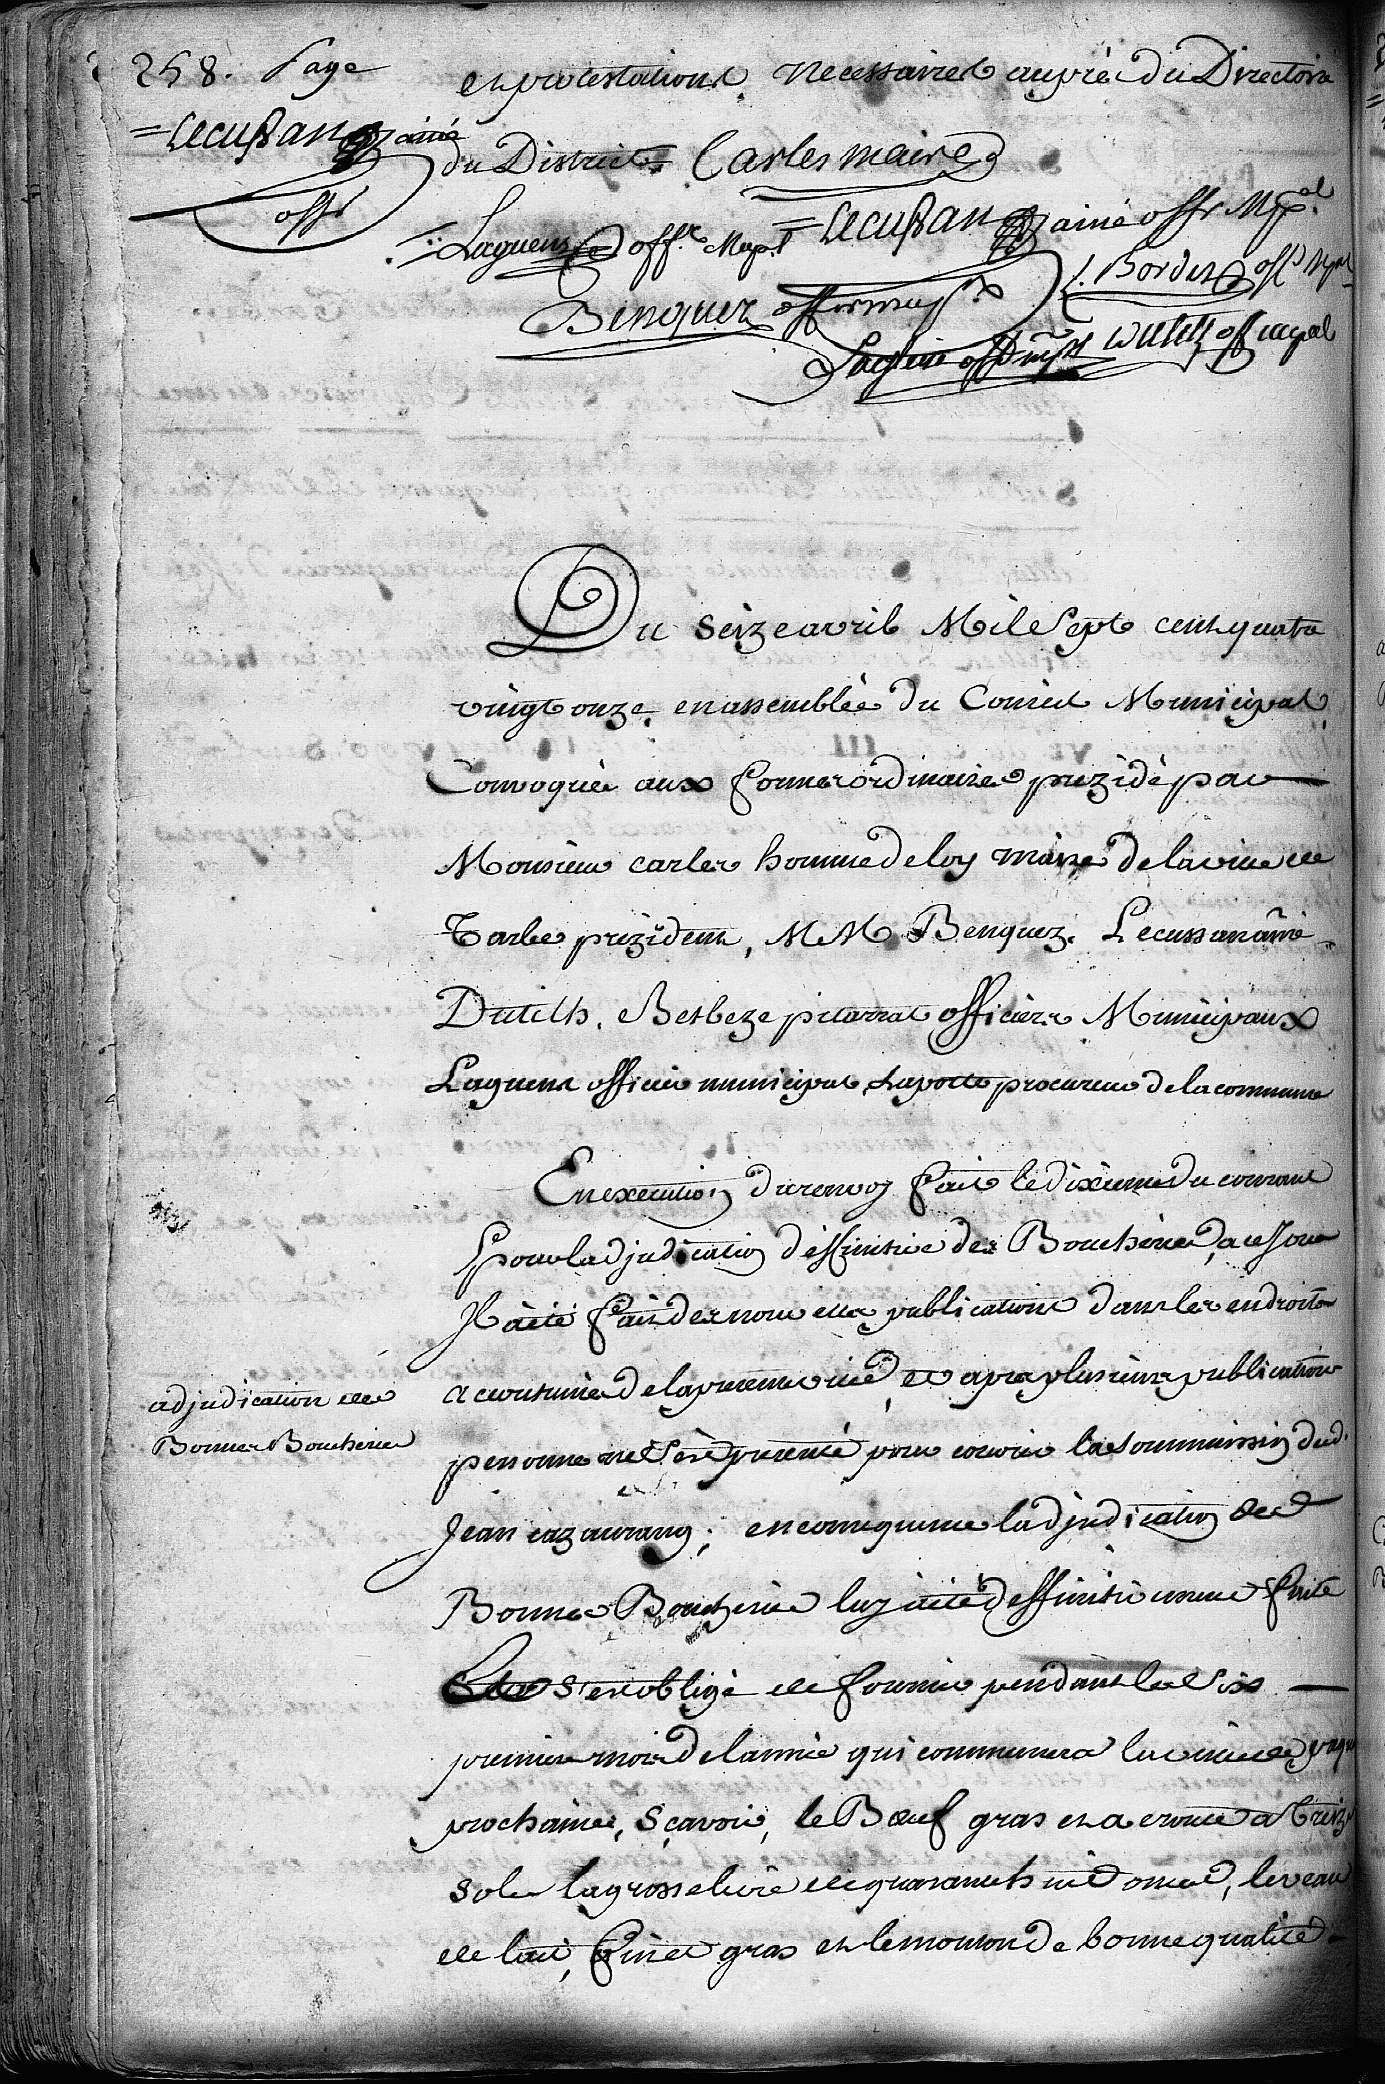 258. Page
et protestations necessaires auprés du Directoire
= Lecussan ainé
offr
du District. Carles maire
Laguens offr. Mupal
= Lecussan ainé offr Mpal.
Benquez offr muple
J. Bordes off mpal
offr mpl
off mupal
Du seize avril Mil Sept cent quatre
vingt onze, en assemblée du Conseil Municipal
Convoquée aux formes ordinaires prezidé par
Monsieur carles homme de loy maire de la ville de
Tarbe prezident, MM Benquez, Lecussan ainé
Dutilh, Betbeze pitarrat officiers Municipaux
Laguens officier municipal, Laporte procureur de la commune
En execution du renvoy fait le dixieme du courant
Pour l'adjudication deffinitive des Boucheries, a ce Jour
Il a eté fait des nouvelles publications dans les endroits
accoutumés de la presente ville, et apres plusieurs publications
personne ne s'est presenté pour couvrir la soummission dud.
Jean cazaurang; en consequence l'adjudication des
adjudication des
Bonnes Boucheries
Bonnes Boucheries luy a eté deffinitivement faite
s'est obligé de fournir pendant les Six
premiers mois de l'année qui commencera la veille de paques
prochaines, Sçavoir, le Bœuf gras et a croute a treize
sols la grosse livre de quarante huit onces, le veau
de lait, fin et gras et le mouton de bonne qualité